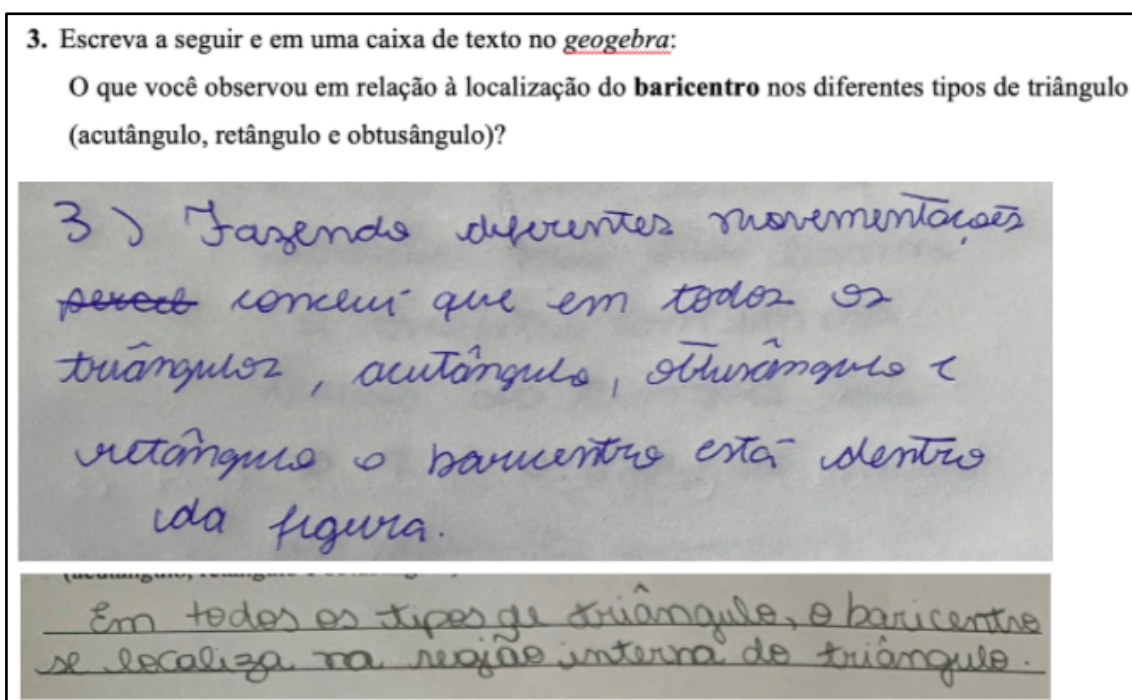 3. Escreva a seguir e em uma caixa de texto no geogebra:
O que você observou em relação à localização do baricentro nos diferentes tipos de triângulo
(acutângulo, retângulo e obtusângulo)?
3) Fazendo diferentes movementações
perceb conclui que em todos os
triângulos, acutângulo, obtusângulo e
retângulo o baricentro está dentro
da figura.
Em todos os tipos de triângulo, o baricentro
se localiza na região interna do triângulo.